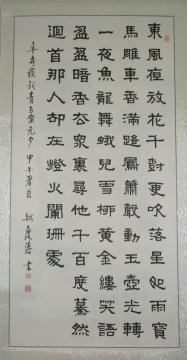 東風夜放花千樹更吹落星如雨寶
馬雕車香滿路鳳簫聲動玉壺光轉
一夜魚龍舞蛾兒雪柳黃金縷笑語
盈盈暗香去衆裏尋他千百度驀然
迴首那人却在燈火闌珊處
辛弃疾詞青玉案元夕 甲午 月 書